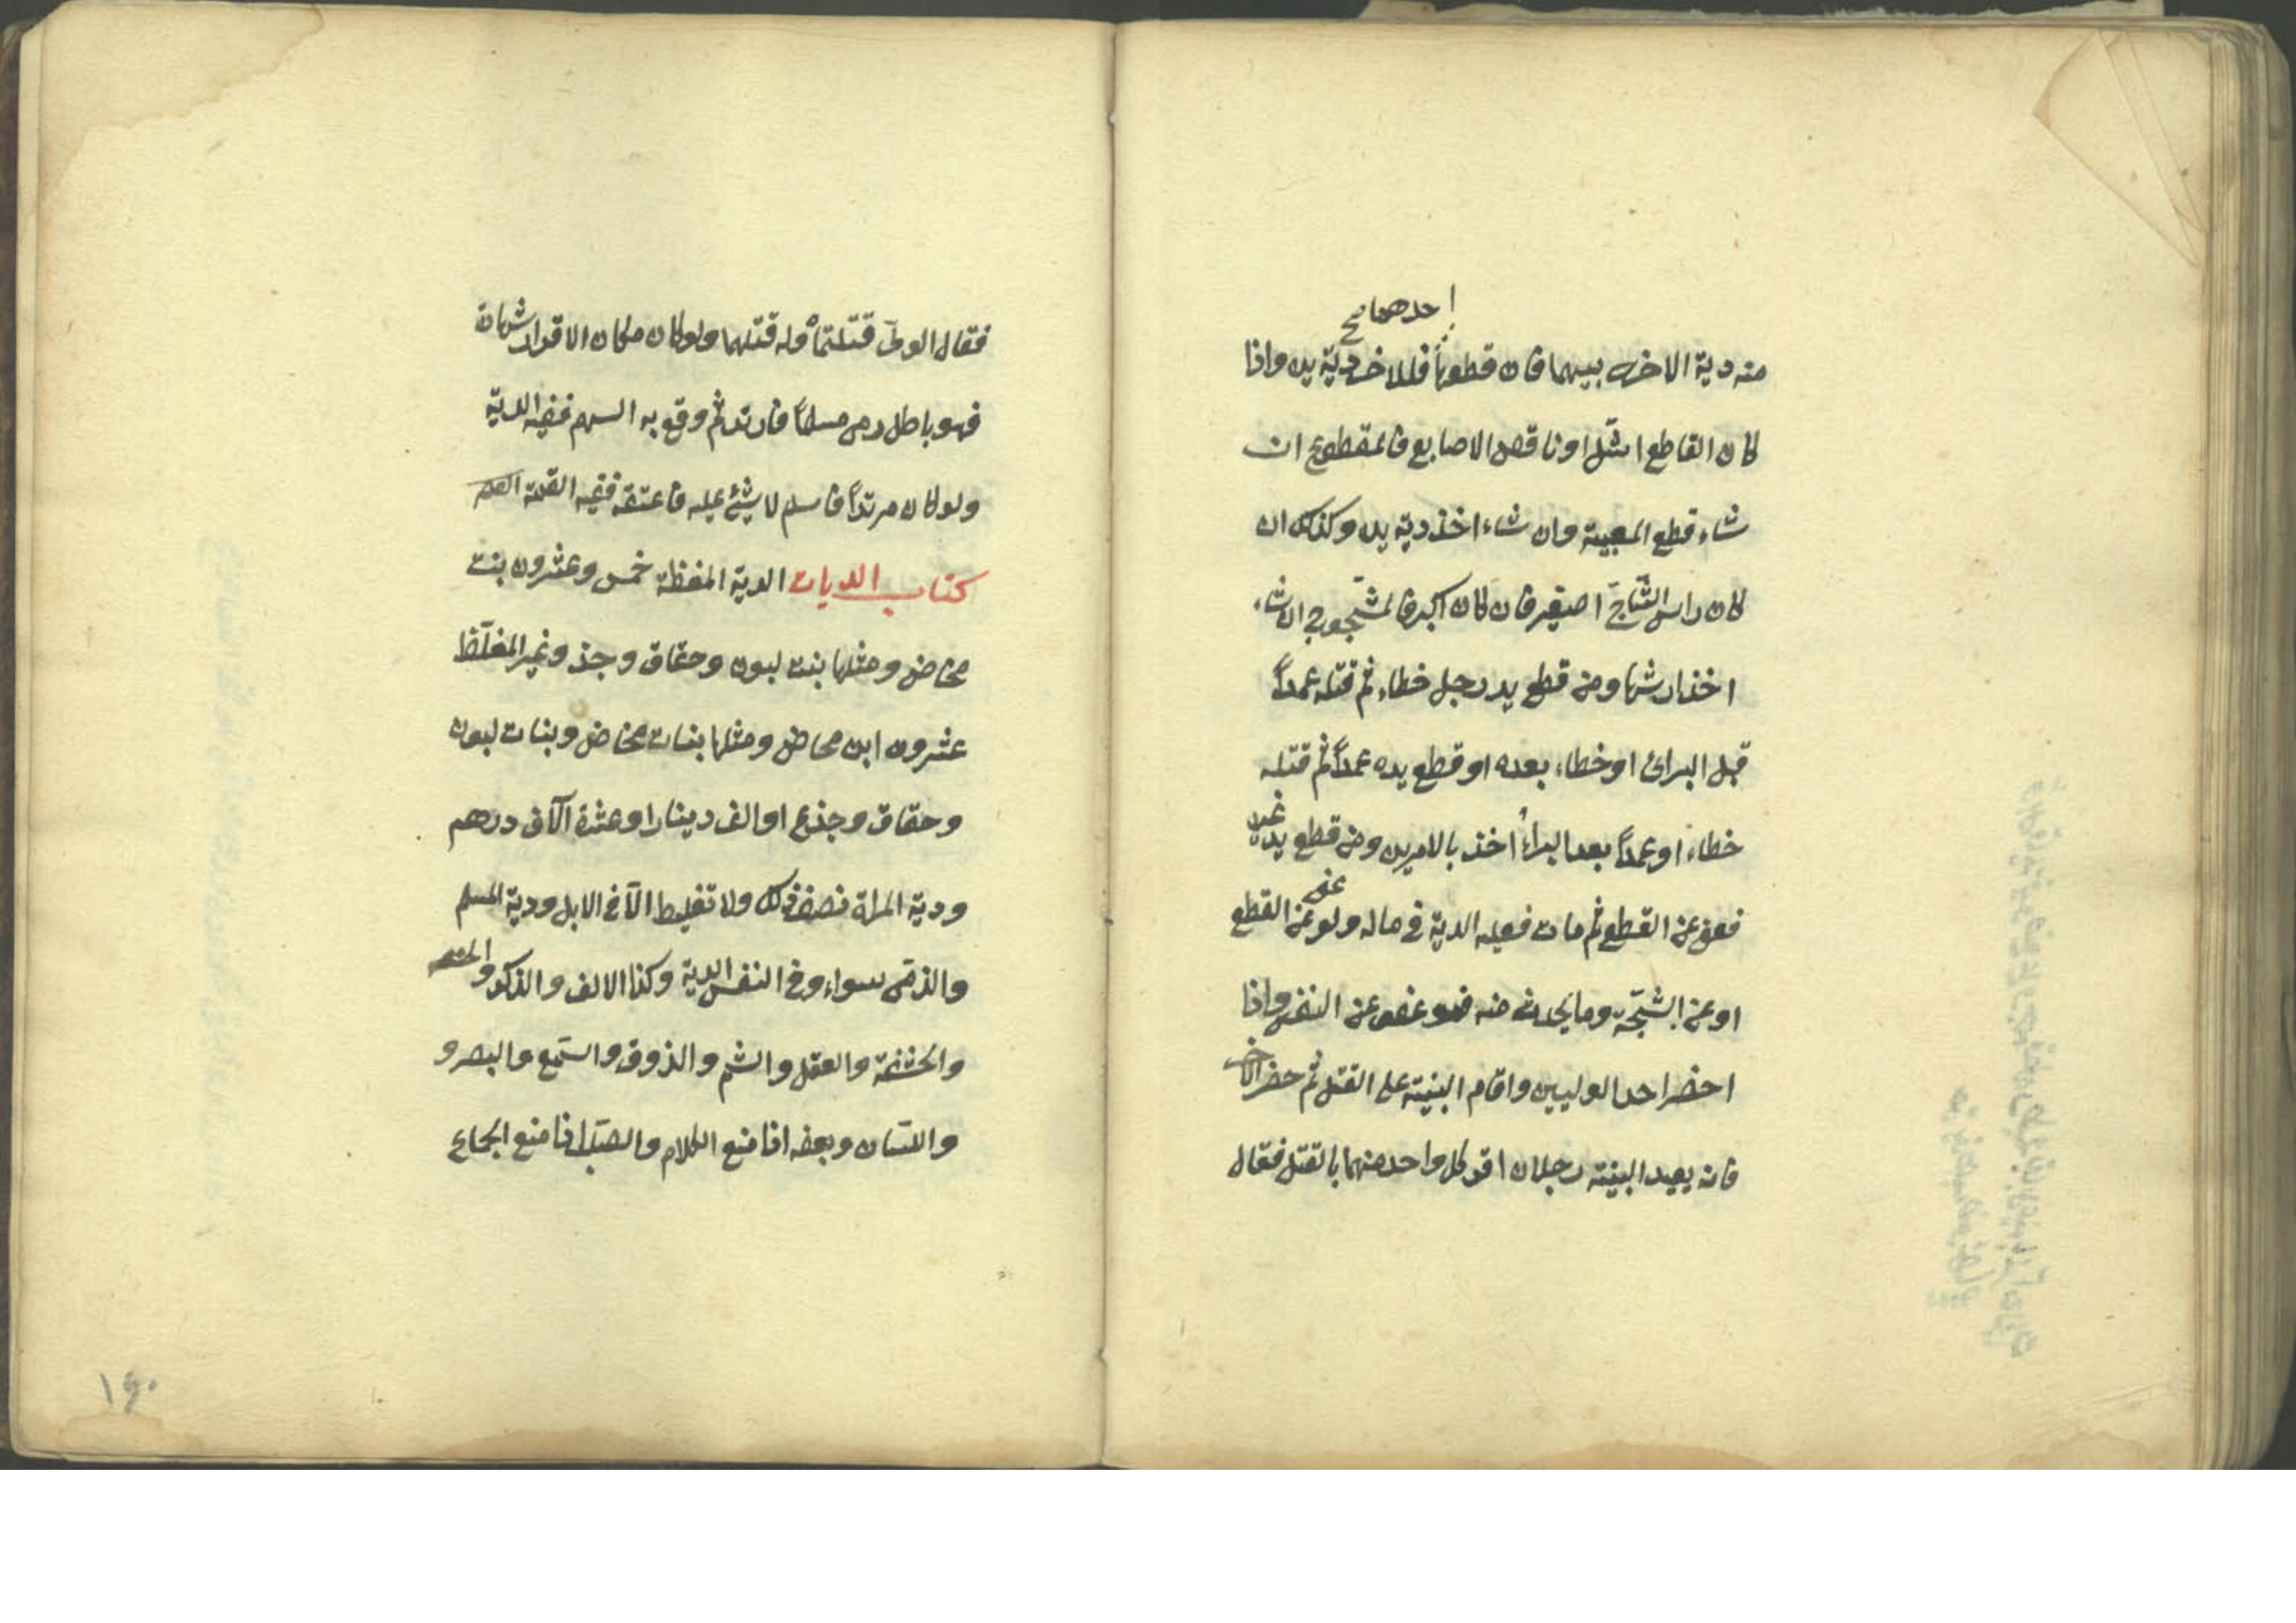 احدهما صح
منه دية الاخرى بينهما فان قطعها فللاخر دية يد واذا
كان القاطع اشل او ناقص الاصابع فالمقطوع ان
شاء قطع المعيبة وان شاء اخذ دية يد وكذلك ان
كان راس الشاج اصغر فان كان اكبر فالمشجوج ان شاء
اخذ ارشها ومن قطع يد رجل خطاء ثم قتله عمداً
قبل البرائ او خطاء بعده او قطع يده عمداً ثم قتله
خطاء او عمداً بعد البراء اخذ بالامرين ومن قطع يد غيره
فعفى عن القطع ثم مات فعليه الدية في ماله ولو عفى عن القطع
او عن الشجّة وما يحدث منه فهو عفو عن النفس واذا
احضر احد الوليين واقام البينة على القتل ثم حضر الاخر
فانه يعيد البينة رجلان اقر كل واحد منهما بالقتل فقال
فقال الولىّ قتلتماه وله قتلهما ولو كان مكان الاقرار شهادة
فهو باطل رمى مسلماً فارتد ثم وقع به السهم ففيه الدية
ولو كان مرتداً فاسلم لا شئ عليه فاعتقه ففيه القيمة
كتاب الديات الدية المغلظة خمس وعشرون بنت
مخاض ومثلها بنت لبون وحقاق وجذ وغير المغلّظ
عشرون ابن مخاض ومثلها بنات مخاض وبنات لبون
وحقاق وجذع او الف دينار او عشرة آلاف درهم
ودية المراة نصف ذلك ولا تغليظ الّا في الابل ودية المسلم
والذمّى سواء وفي النفس الدية وكذا الانف والذكر و
والحشفة والعقل والشم والذوق والسّمع والبصر و
واللسّان وبعضه اذا منع الكلام والصلب اذا منع الجماع
١٤٠